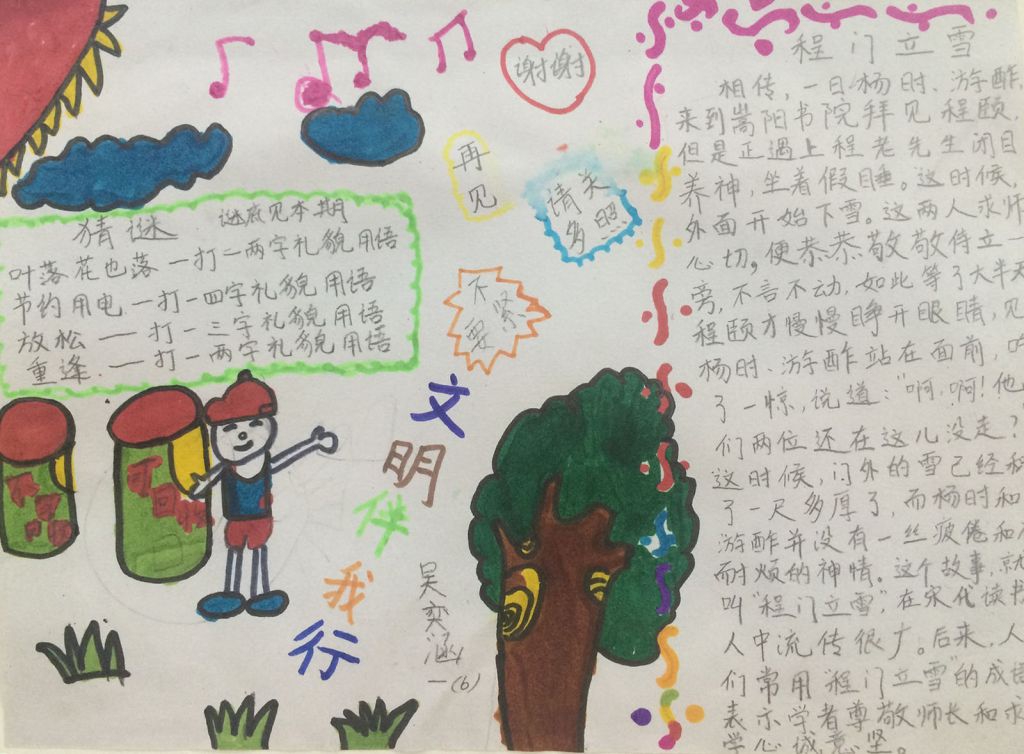 谢谢
再见
请关
多照
不要紧
猜谜 谜底见本期
叶落花也落一打一两字礼貌用语
节约用电一打一四字礼貌用语
放松一打一三字礼貌用语
重逢.一打一两字礼貌用语
可
回收
文明伴我行
吴奕涵
一(6)
程门立雪
相传,一日杨时、游酢,
来到嵩阳书院拜见程颐,
但是正遇上程老先生闭目
养神,坐着假睡。这时候,
外面开始下雪。这两人求师
心切,便恭恭敬敬侍立一
旁,不言不动,如此等了大半天
程颐才慢慢睁开眼睛,见
杨时、游酢站在面前,吃
了一惊,说道:“啊,啊!他
们两位还在这儿没走?
这时候,门外的雪已经积
了一尺多厚了,而杨时和
游酢并没有一丝疲倦和不
耐烦的神情。这个故事,就
叫“程门立雪”,在宋代读书
人中流传很广。后来,人
们常用“程门立雪”的成语
表示学者尊敬师长和求
学心诚意坚。